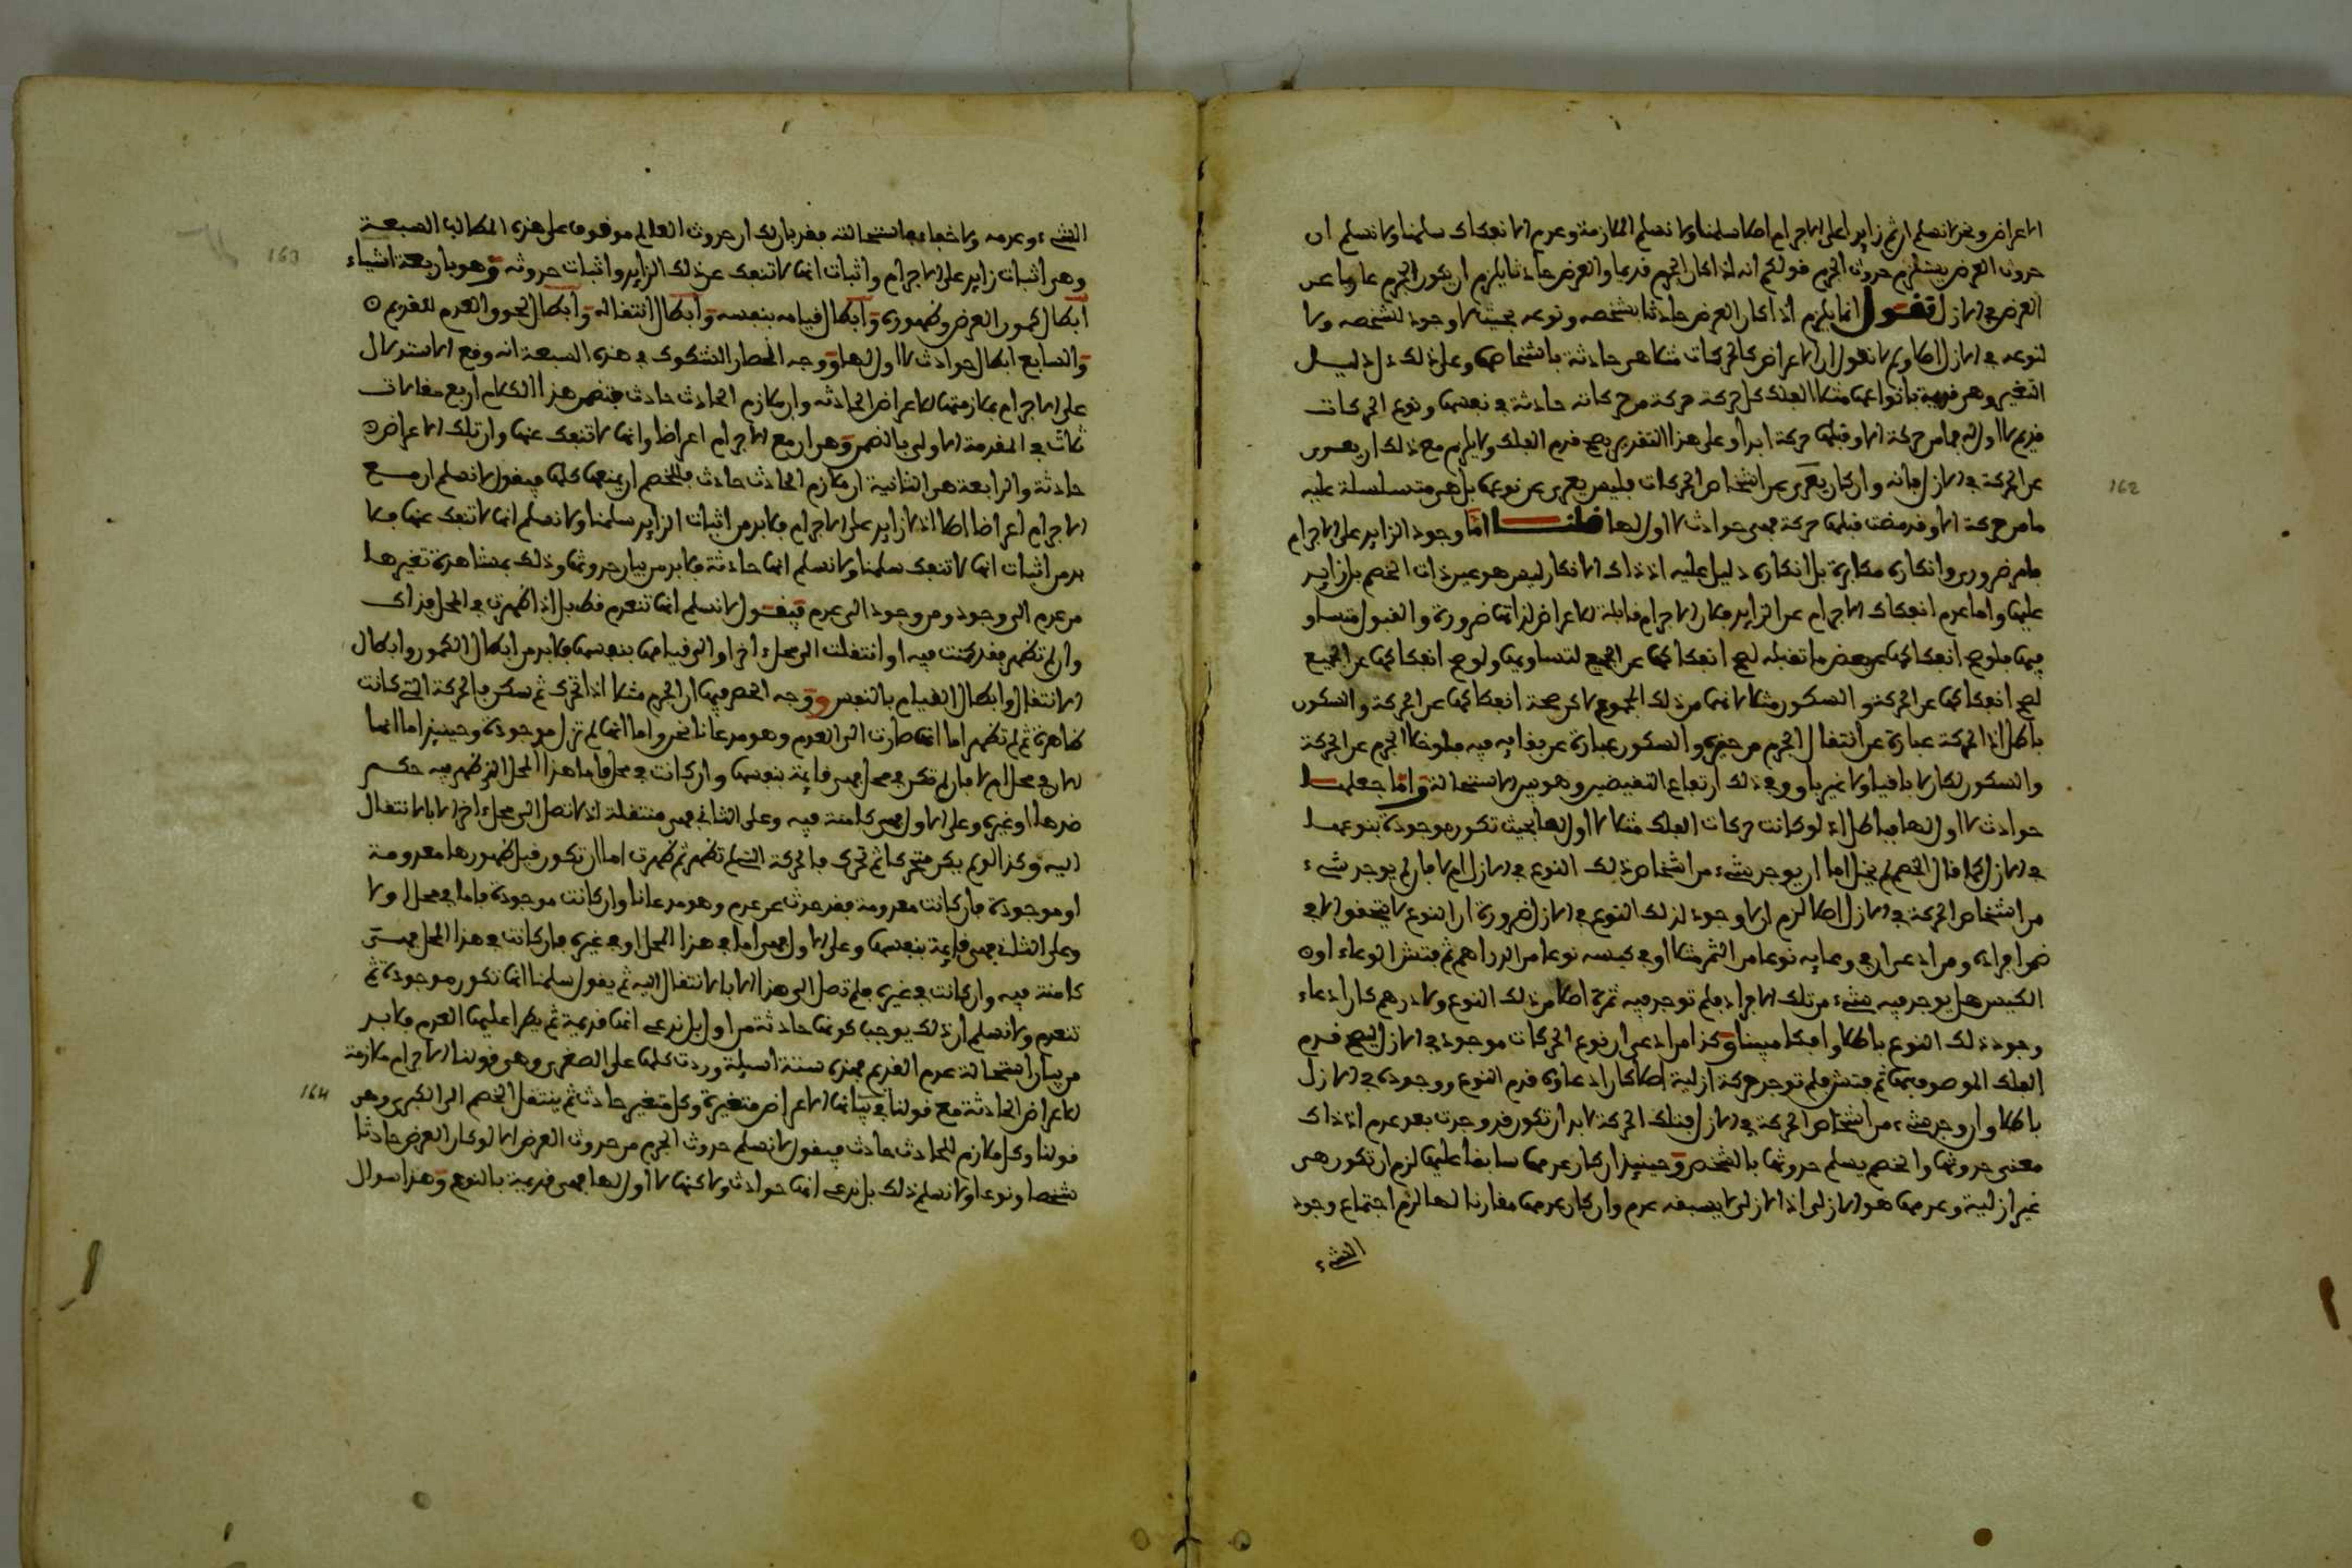 الاعراض ونحن لا نسلم ان ثم زايدا على الاجرام اصلا سلمنا ولا نسلم الملازمة وعدم الانفكاك سلمنا ولا نسلم ان
حدوث العرض يستلزم حدوث الجرم قولكم انه اذا كان الجرم قديما والعرض حادثا يلزم ان يكون الجرم عاريا عن
العرض في الازل فنقول انما يلزم اذا كان العرض حادثا بشخصه ونوعه بحيث لا وجود لشخصه ولا
لنوعه في الازل اصلا ولم لا نقول ان الاعراض كالحركات مثلا هي حادثة باشخاصها وعلى ذلك دل دليل
التغير وهي قديمة بانواعها مثلا الفلك كل حركة حركة من حركاته حادثة في نفسها ونوع الحركات
قديم لا اول له فما من حركة الا وقبلها حركة ابدا وعلى هذا التقدير يصح قدم الفلك ولا يلزم مع ذلك ان يعرى
عن الحركة في الازل فانه وان كان يعرى عن اشخاص الحركات فليس يعرى عن نوعها بل هي متسلسلة عليه
ما من حركة الا وقد مضت قبلها حركة فهي حوادث لا اول لها قلنا اما وجود الزايد على الاجرام
فامر ضروري وانكاره مكابرة بل انكاره دليل عليه اذ ذاك الانكار ليس هو عين ذات الخصم بل زايد
عليها واما عدم انفكاك الاجرام عن الزايد فلان الاجرام قابلة للاعراض لذاتها ضرورة والقبول متساو
فيها فلو صح انفكاكها عن بعض ما تقبله لصح انفكاكها عن الجميع لتساويها ولو صح انفكاكها عن الجميع
لصح انفكاكها عن الحركة والسكون مثلا لانهما من ذلك المجموع لاكن صحة انفكاكها عن الحركة والسكون
باطل اذ الحركة عبارة عن انتقال الجرم من حيزه والسكون عبارة عن بقايه فيه فلو خلا الجرم عن الحركة
والسكون لكان لا باقيا ولا غير باق وفي ذلك ارتفاع النقيضين وهو بين الاستحالة واما جعلها
حوادث لا اول لها فباطل اذ لو كانت حركات الفلك مثلا لا اول لها بحيث تكون موجودة بنوعها
في الازل كما قال الخصم لم يخل اما ان يوجد شيء من اشخاص ذلك النوع في الازل ام لا فان لم يوجد شيء
من اشخاص الحركة في الازل اصلا لزم ان لا وجود لذلك النوع في الازل ضرورة ان النوع لا يتحقق الا في
ضمن افراده ومن ادعى ان في وعايه نوعا من الثمر مثلا او في كيسه نوعا من الدراهم ثم فتش الوعاء او
الكيس هل يوجد فيه شيء من تلك الافراد فلم توجد فيه ثمرة اصلا من ذلك النوع ولا درهم كان ادعاء
وجود ذلك النوع باطلا وافكا مبينا وكذا من ادعى ان نوع الحركات موجود في الازل ليصح قدم
الفلك الموصوف بها ثم فتش فلم توجد حركة ازلية اصلا كان ادعاؤه قدم النوع ووجوده في الازل
باطلا وان وجد شيء من اشخاص الحركة في الازل فتلك الحركة لا بد ان تكون قد وجدت بعد عدم اذ ذاك
معنى حدوثها والخصم يسلم حدوثها بالشخص وحينيذ ان كان عدمها سابقا عليها لزم ان تكون هي
غير ازلية وعدمها هو الازلي اذ الازلي لا يسبقه عدم وان كان عدمها مقارنا لها لزم اجتماع وجود
الشيء
162
الشيء وعدمه ولا خفاء في استحالته فقد بان لك ان حدوث العالم موقوف على هذه المطالب السبعة
وهي اثبات زايد على الاجرام واثبات انها لا تنفك عن ذلك الزايد واثبات حدوثه وهو باربعة اشياء
ابطال كمون العرض وظهوره وابطال قيامه بنفسه وابطال انتقاله وابطال لحوق العدم للقديم
والسابع ابطال حوادث لا اول لها ووجه انحصار الشكوك في هذه السبعة انه وقع الاستدلال
على الاجرام بملازمتها للاعراض الحادثه وان ملازم الحادث حادث فتضمن هذا الكلام اربع مقامات
ثلاث في المقدمة الاولى بالضمن وهي ان مع الاجرام اعراضا وانها لا تنفك عنها وان تلك الاعراض
حادثة والرابعة هي الثانية ان ملازم الحادث حادث فللخصم ان يمنعها كلها فيقول لا نسلم ان مع
الاجرام اعراضا اصلا اذ لا زايد على الاجرام فلا بد من اثبات الزايد سلمنا ولا نسلم انها لا تنفك عنها فلا
بد من اثبات انها لا تنفك سلمنا ولا نسلم انها حادثة فلا بد من بيان حدوثها وذلك بمشاهدة تغيرها
من عدم الى وجود ومن وجود الى عدم فيقول لا نسلم انها تنعدم قط بل اذا ظهرت في المحل فذاك
وان لم تظهر فقد كمنت فيه او انتقلت الى محل اخر او الى قيامها بنفسها فلا بد من ابطال الكمون وابطال
الانتقال وابطال القيام بالنفس ووجه الحصر فيها ان الجرم مثلا اذا تحرك ثم سكن فالحركة التي كانت
ظاهرة ثم لم تظهر اما انها صارت الى العدم وهو مدعانا نحن واما انها لم تزل موجودة وحينيذ اما انها
في محل ام لا فان لم تكن في محل فهي قايمة بنفسها وان كانت في محل فاما هذا المحل الذي ظهر فيه حكم
ضدها او غيره وعلى الاول فهي كامنة فيه وعلى الثاني فهي منتقلة اذ لا تصل الى محل اخر الا بالانتقال
اليه وكذا لو لم يكن متحركا ثم تحرك فالحركة التي لم تظهر ثم ظهرت اما ان تكون قبل ظهورها معدومة
او موجودة فان كانت معدومة فقد حدثت عن عدم وهو مدعانا وان كانت موجودة فاما في محل او لا
وعلى الثاني فهي قايمة بنفسها وعلى الاول فهي اما في هذا المحل او في غيره فان كانت في هذا المحل فهي
كامنة فيه وان كانت في غيره فلم تصل الى هذا الا بالانتقال اليه ثم يقول سلمنا انها تكون موجودة ثم
تنعدم ولا نسلم ان ذلك يوجب كونها حادثة من اول بل ندعي انها قديمة ثم يطرا عليها العدم فلا بد
من بيان استحالة عدم القديم فهذه ستة اسيلة وردت كلها على الصغرى وهو قولنا الاجرام ملازمة
للاعراض الحادثة مع قولنا في بيانها الاعراض متغيرة وكل متغير حادث ثم ينتقل الخصم الى الكبرى وهي
قولنا وكل ملازم للحادث حادث فيقول لا نسلم حدوث الجرم من حدوث العرض الا لو كان العرض حادثا
شخصا ونوعا ولا نسلم ذلك بل ندعي انها حوادث ولاكنها لا اول لها فهي قديمة بالنوع وهذا سوال
163
164